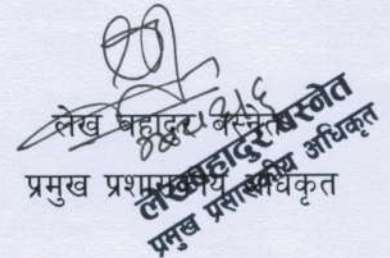 लेख बहादुर बस्नेत
प्रमुख प्रशासकीय अधिकृत
लेखबहादुर बस्नेत
प्रमुख प्रसासकीय अधिकृत